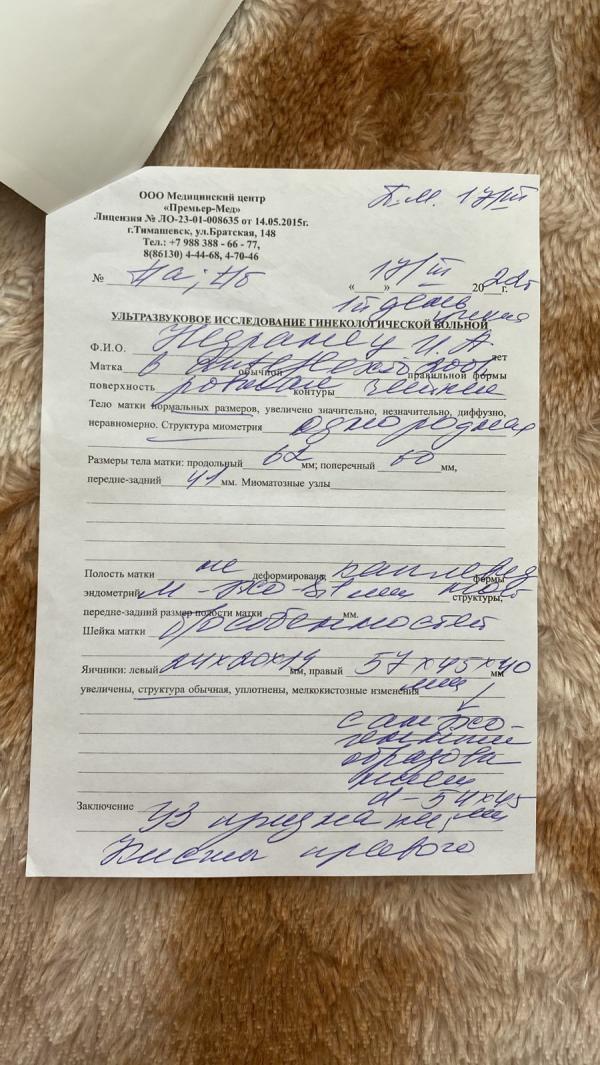 ООО Медицинский центр
«Премьер-Мед»
Лицензия № ЛО-23-01-008635 от 14.05.2015г.
г.Тимашевск, ул.Братская, 148
Тел.: +7 988 388 - 66 - 77,
8(86130) 4-44-68, 4-70-46
П.М. 17/III
№ На; Нб
« » 17/III 20 22г г.
1й день цикла
УЛЬТРАЗВУКОВОЕ ИССЛЕДОВАНИЕ ГИНЕКОЛОГИЧЕСКОЙ БОЛЬНОЙ
Ф.И.О. лет
Матка в обычной правильной формы
поверхность ровная контуры четкие
Тело матки нормальных размеров, увеличено значительно, незначительно, диффузно,
неравномерно. Структура миометрия однородная
Размеры тела матки: продольный 62 мм; поперечный 60 мм,
передне-задний 41 мм. Миоматозные узлы
Полость матки не деформирована формы
эндометрий М-эхо структуры,
передне-задний размер полости матки мм.
Шейка матки б/особенностей
Яичники: левый 24х20х19 мм, правый 57х45х40 мм
увеличены, структура обычная, уплотнены, мелкокистозные изменения
с анэхо-
генным
образова
нием
d - 54х45
мм
Заключение УЗ признаки
Кисты правого